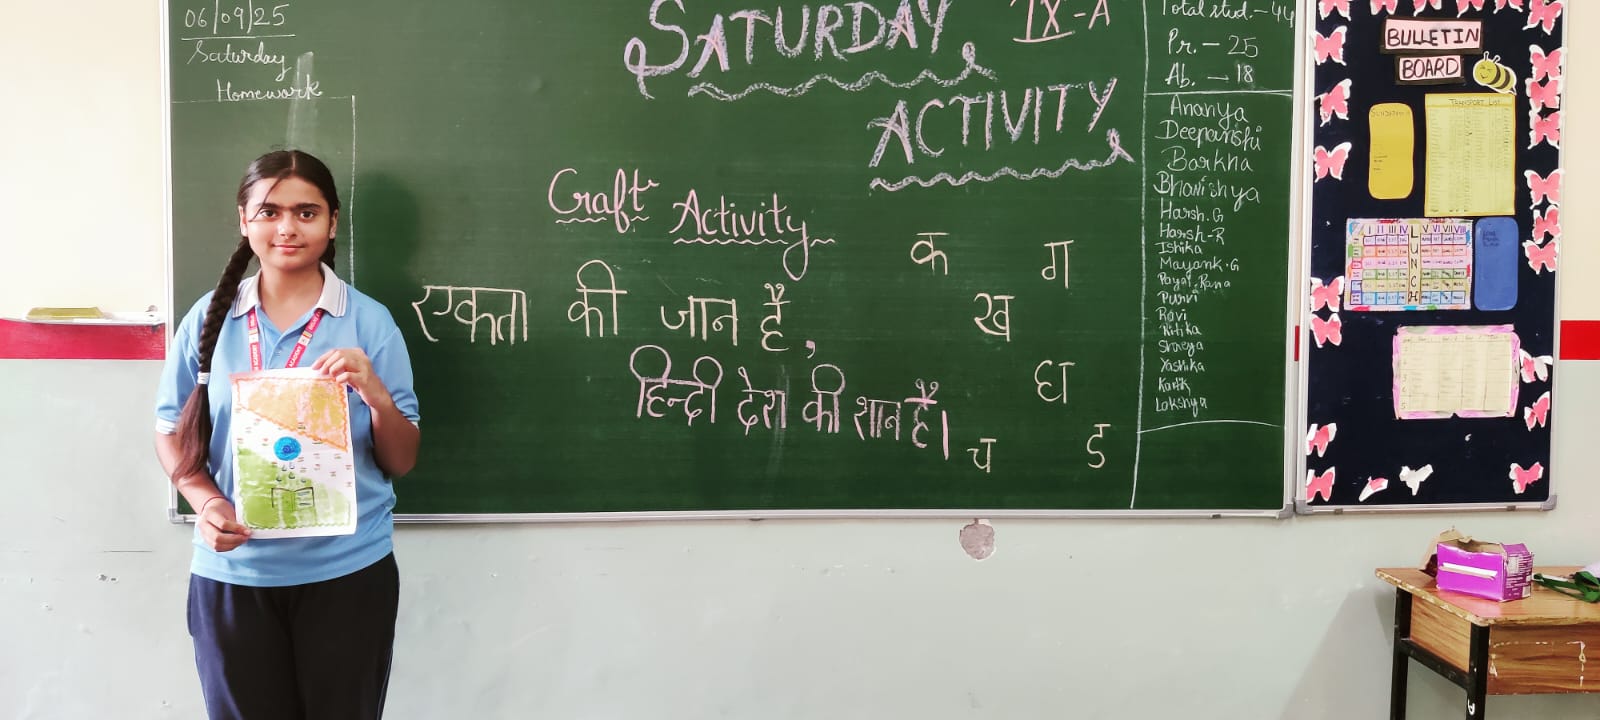 06/09/25
Saturday
Homework
SATURDAY IX-A
ACTIVITY
Craft Activity
एकता की जान है,
हिन्दी देश की शान है।
क ग
ख
घ
च ङ
Total stud.-44
Pr.- 25
Ab. - 18
Ananya
Deepanshi
Barkha
Bhavishya
Harsh.G
Harsh-R
Ishika
Mayank.G
Payal Rana
Purvi
Ravi
Ritika
Shreya
Yashika
Kartik
Lakshya
BULLETIN
BOARD
TRANSPORT LIST
I II III IV V VI VII VIII
LUNCH